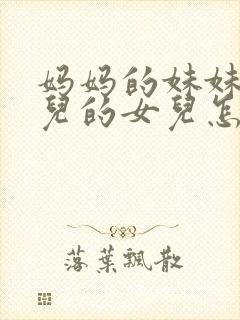 妈妈的妹妹
兒的女兒怎
落葉飄散